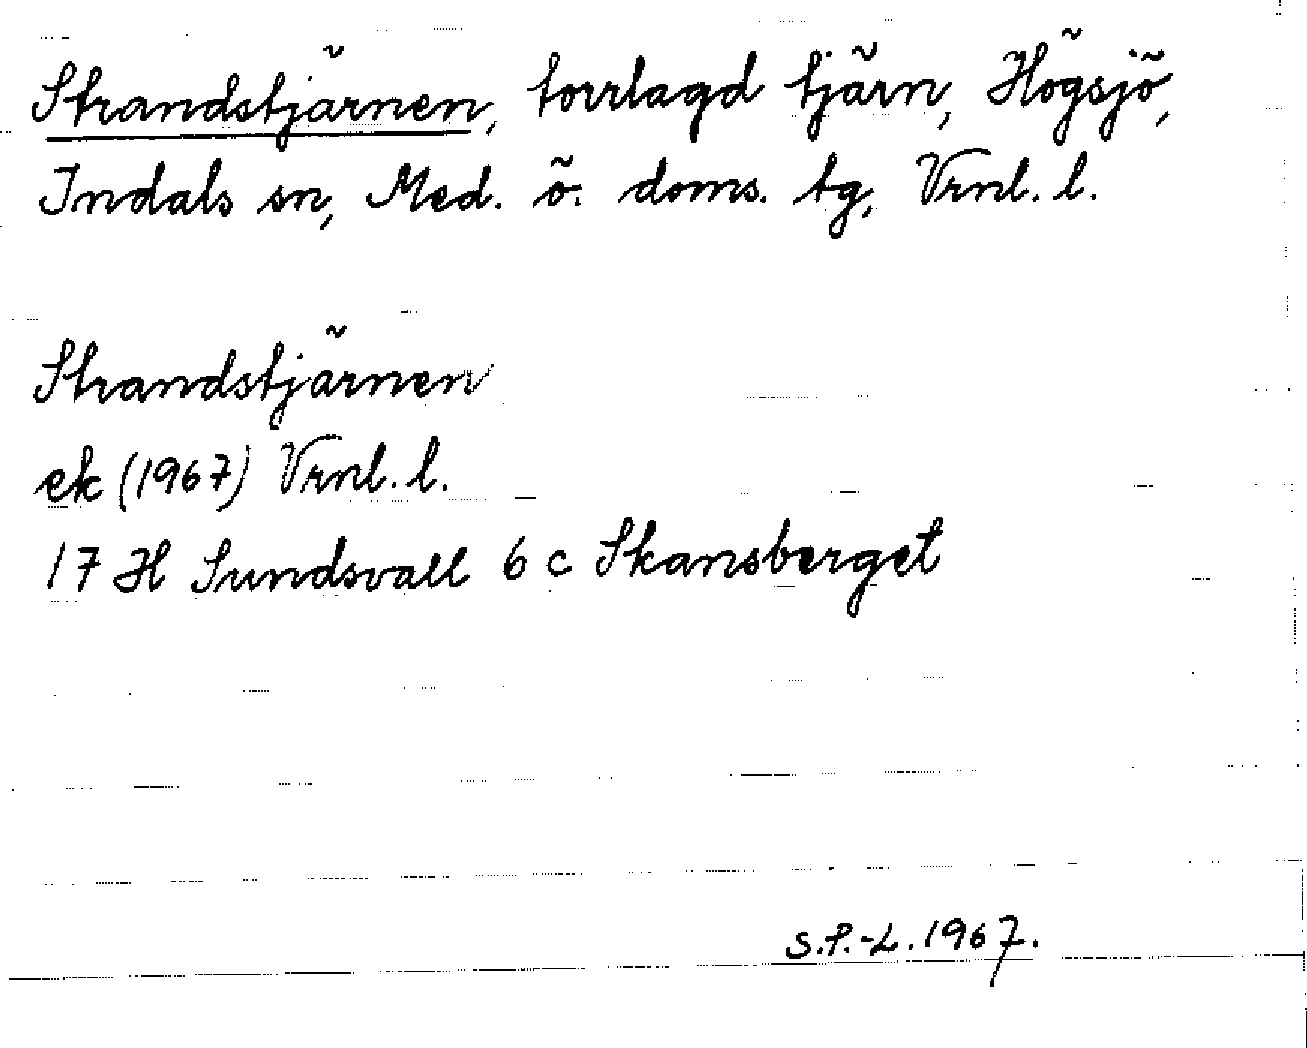 Strandstjärnen, torrlagd tjärn, Högsjö,
Indals sn, Med. ö. doms. tg, Vrnl. l.
Strandstjärnen
ek (1967) Vrnl. l.
17 H Sundsvall 6 c Skansberget
S.P.-L. 1967.